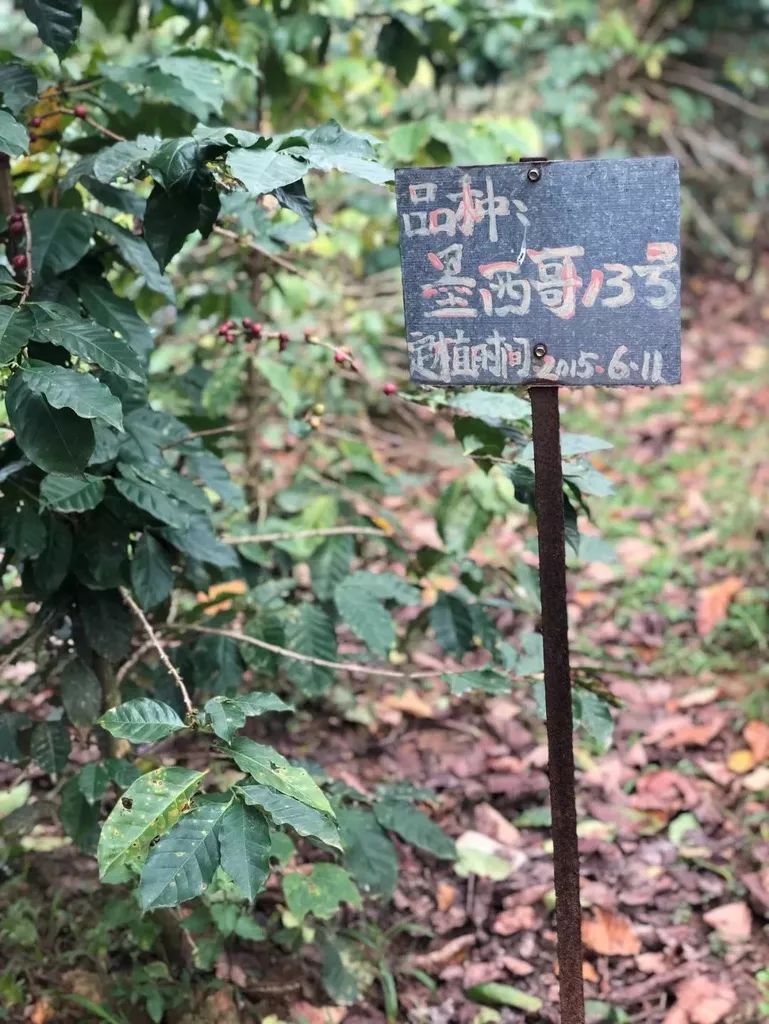 品种:
墨西哥13号
定植时间2015.6.11